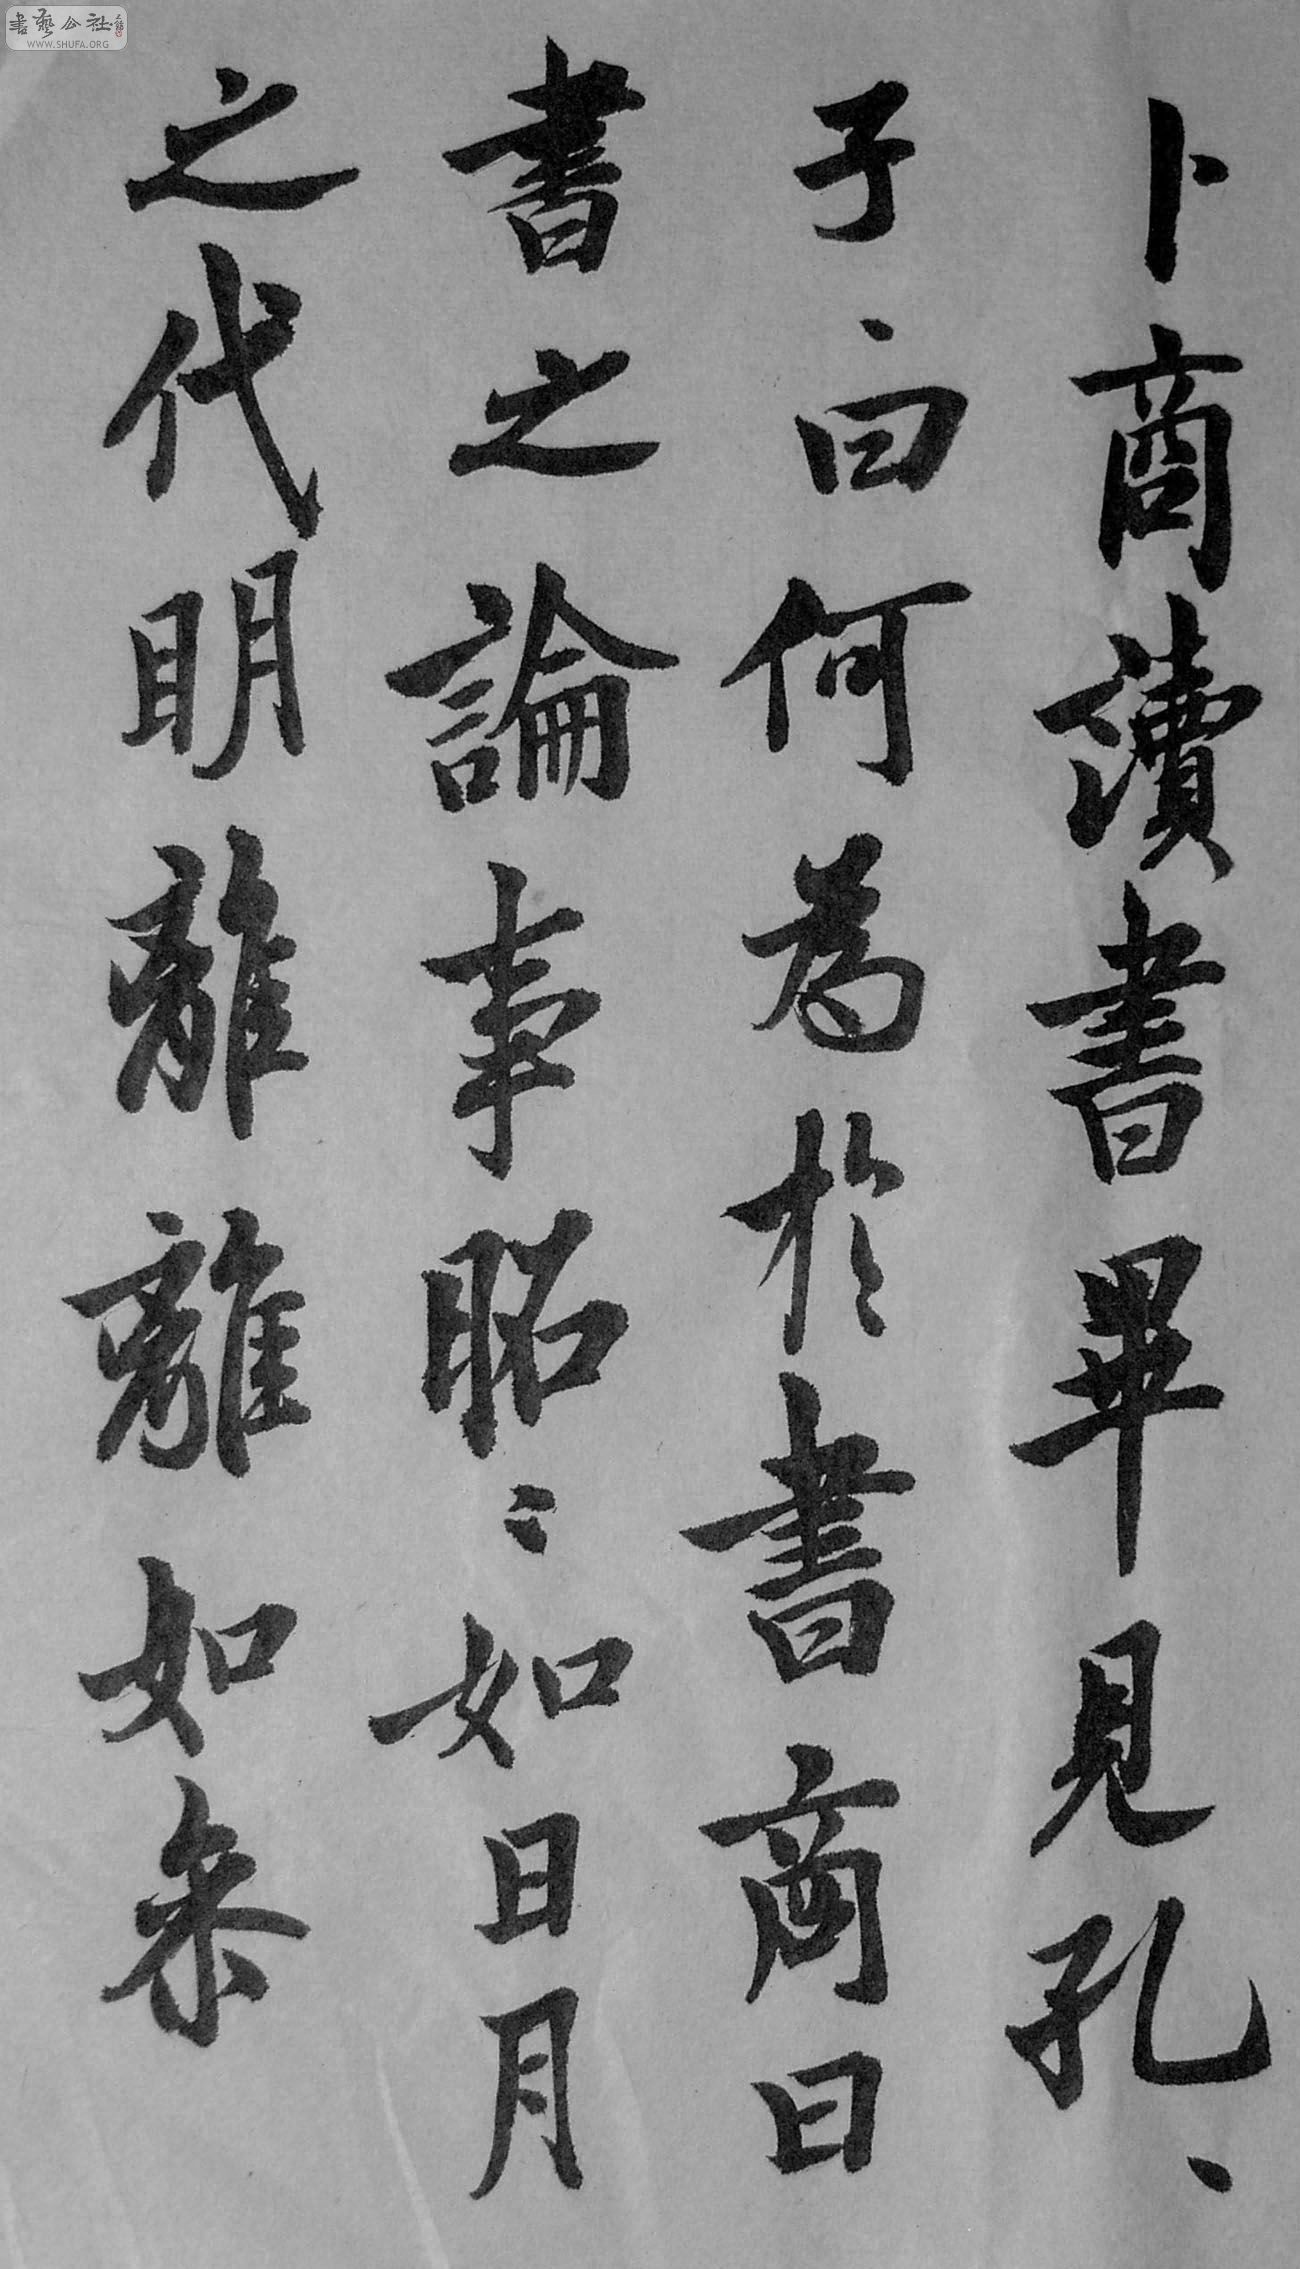 卜商讀書畢見孔、
子曰何為於書商曰
書之論事昭〻如日月
之代明離離如參
書藝公社
WWW.SHUFA.ORG